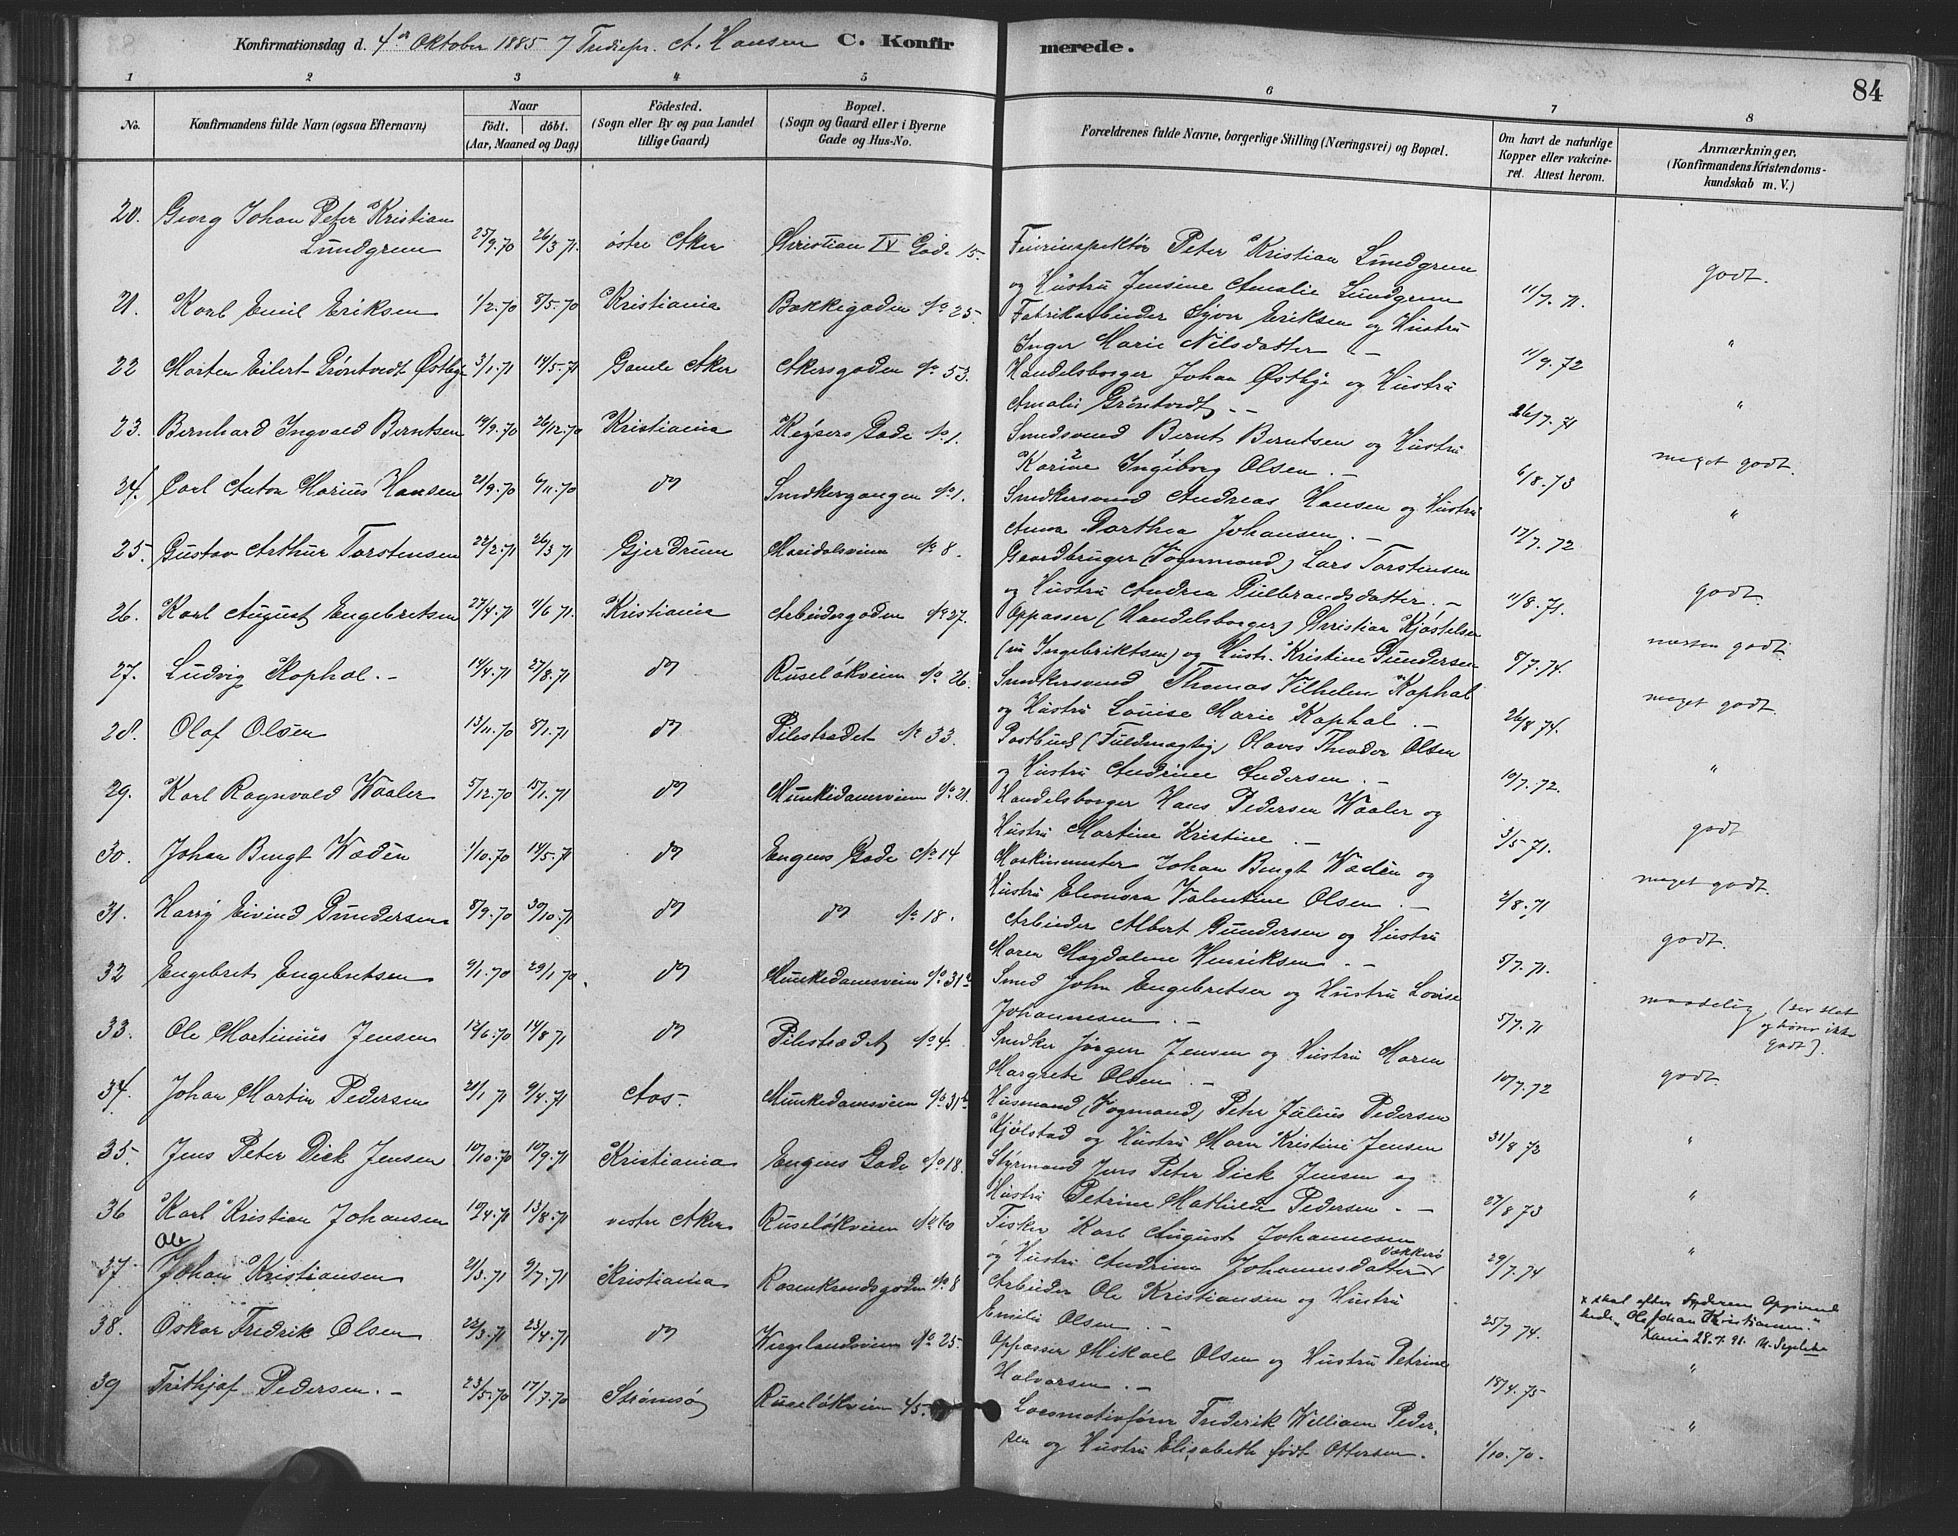 Konfirmationsdag d. 4de Oktober 1885 A. Hansen C. Konfirmerede.
84
1 2 3 4 5 6 7 8
No.
Konfirmandens fulde Navn (ogsaa Efternavn)
Naar
födt. döbt.
(Aar, Maaned og Dag)
Födested.
(Sogn eller By og paa Landet
tillige Gaard)
Bopæl.
(Sogn og Gaard eller i Byerne
Gade og Hus-No.
Forældrenes fulde Navne, borgerlige Stilling (Næringsvei) og Bopæl.
Om havt de naturlige
Kopper eller vakcine-
ret. Attest herom.
Anmærkninger,
(Konfirmandens Kristendoms-
kundskab m. V.)
20. Georg Johan Peter Kristian
Lundgren 25/9.70 26/3.71. østre Aker Christian IV Gade 15. Peter Kristian Lundgren
og Hustru Jensine Amalie Lundgren 11/7.71. godt.
21. Karl Emil Eriksen 1/2.70 8/5.70 Kristiania Bakkegaden No 25. Fabrikarbeider Syver Eriksen og Hustru
Inger Marie Nilsdatter 11/9.72 "
22 Morten Eilert Grøntvedt Østbye 3/1.71 14/5.71 Gamle Aker Akersgaden No 53. Handelsborger Johan Østbye og Hustru
Amalie Grøntvedt 26/7.71 "
23. Bernhard Ingvald Berntsen 14/9.70 26/12.70 Kristiania Keysers Gade No 1. Smedsvend Bernt Berntsen og Hustru
Karine Ingeborg Olsen. 6/8.73 meget godt.
24. Carl Anton Marius Hansen 21/9.70 6/11.70 do Smedkergangen No 1. Snedkersvend Andreas Hansen og Hustru
Anna Dorthea Johansen. 17/7.72 "
25. Gustav Arthur Torstensen 22/2.71 26/3.71 Gjerdrum Maridalsveien No 8. Gaardbruger (Vognmand) Lars Torstensen
og Hustru Andrea Gulbrandsdatter. 11/8.71. godt.
26. Karl August Engebretsen 27/4.71 1/6.71. Kristiania Arbeidergaden No 27. Oppasser (Handelsborger) Christian Kjøstelsen
(nu Ingebriktsen) og Hustr. Kristine Gundersen 8/7.74. næsten godt.
27. Ludvig Kophal. 14/4.71 27/8.71 do Ruseløkveien No 26. Snedkersvend Thomas Vilhelm Kophal
og Hustru Louise Marie Kophal. 26/8.74. meget godt.
28. Olaf Olsen 13/11.70 8/1.71 do Pilestrædet No 33. Postbud (Fuldmægtig) Olaves Theodor Olsen
og Hustru Andrine Andersen. 10/7.72. "
29. Karl Ragnvald Waaler 5/12.70 15/1.71 do Munkedamsveien No 21. Handelsborger Hans Pedersen Waaler og
Hustru Martine Kristine. 3/5.71. godt
30. Johan Bengt Wadén 1/10.70 14/5.71 do Engens Gade No 14 Maskinmester Johan Bengt Wadén og
Hustru Eleonora Valentine Olsen. 2/8.71 meget godt.
31. Harry Eivind Gundersen 8/9.70 30/10.71 do do No 18. Arbeider Albert Gundersen og Hustru
Maren Magdalene Henriksen. 5/7.71. godt.
32 Engebret Engebretsen 9/1.70 29/1.70 do Munkedamsveien No 31 Smed John Engebretsen og Hustru Lovise
Johannesen. 5/7.71 maadelig (ser slet
og hører ikke
godt).
33. Ole Martinius Jensen 12/6.70 14/8.71 do Pilestrædet No 4. Snedker Jørgen Jensen og Hustru Maren
Margrete Olsen. 10/7.72 godt
34. Johan Martin Pedersen 21/1.71 9/4.71 Aas. Munkedamsveien No 31 Husmand (Vogmand) Peter Julius Pedersen
Kjølstad og Hustru Maren Kristine Jensen 31/8.72 "
35. Jens Peter Dick Jensen 10/10.70 10/9.71 Kristiania Engens Gade No 18. Styrmand Jens Peter Dick Jensen og
Hustru Petrine Mathilde Pedersen. 27/8.73 "
36 Karl Kristian Johansen 10/4.71 13/8.71 vestre Aker Ruseløkveien No 60 Fisker Karl August Johannesen
og Hustru Andrine Johannesdatter Vækkerø 29/7.74 "
37. Ole
Johan Kristiansen 21/3.71 9/7.71 Kristiania Rosenkrandsgaden No 8 Arbeider Ole Kristiansen og Hustru
Emilie Olsen. 25/7.74. x skal efter Opgivende
hede "Ole Johan Kristiansen."
Kania 28.7.91.
38. Oskar Fredrik Olsen 22/3.71 23/4.71 do Wergelandsveien No 25. Oppasser Mikael Olsen og Hustru Petrine
Halvorsen. 18/4.75 "
39 Frithjof Pedersen. 23/5.70 17/7.70 Strømsø Ruseløkveien 45. Locomotivfører Frederik William Peder-
sen og Hustru Elisabeth født Ottersen. 1/10.70. "